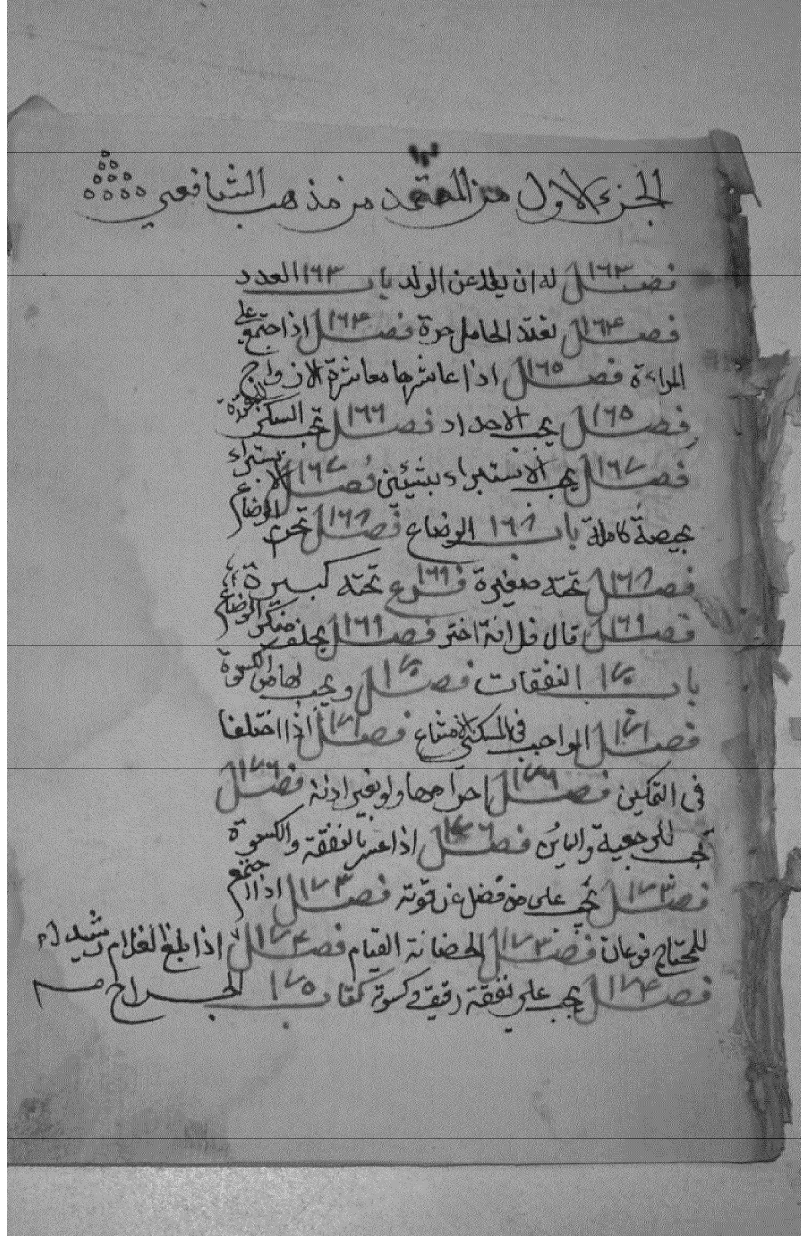 الجزء الاول من المعتمد من مذهب الشافعي
فصل ١٦٣ له ان يلاعن الولد باب ١٦٣ العدد
فصل ١٦٤ تعتد الحامل حرة فصل ١٦٤ اذا اجتمع على
المراءة فصل ١٦٥ اذا عاشرها معاشرة الازواج
فصل ١٦٥ يجب الاحداد فصل ١٦٦ تجب السكنى للمعتدة
فصل ١٦٧ يجب الاستبراء بشيئين فصل ١٦٧ الاستبراء
بحيضة كاملة باب ١٦٨ الرضاع فصل ١٦٨ تحرم الرضاع
فصل ١٦٨ تحته صغيرة فرع ١٦٩ تحته كبيرة
فصل ١٦٩ قال فلانة اختي فصل ١٦٩ يحلف منكر الرضاع
باب ١٧٠ النفقات فصل ١٧٠ ويجب لها من الكسوة
فصل ١٧١ الواجب في المسكن الامتاع فصل ١٧١ اذا اختلفا
في التمكين فصل ١٧٢ احرامها ولو بغير اذنه فصل ١٧٢
تجب للرجعية والبائن فصل ١٧٢ اذا اعسر بالنفقة والكسوة
فصل ١٧٣ تجب على من فضل عن قوته فصل ١٧٣ اذا اجتمع
للمحتاج فرعان فصل ١٧٣ الحضانة القيام فصل ١٧٤ اذا بلغ الغلام رشيدا
فصل ١٧٤ يجب على نفقة رقيق وكسوة كتاب ١٧٥ الجراح